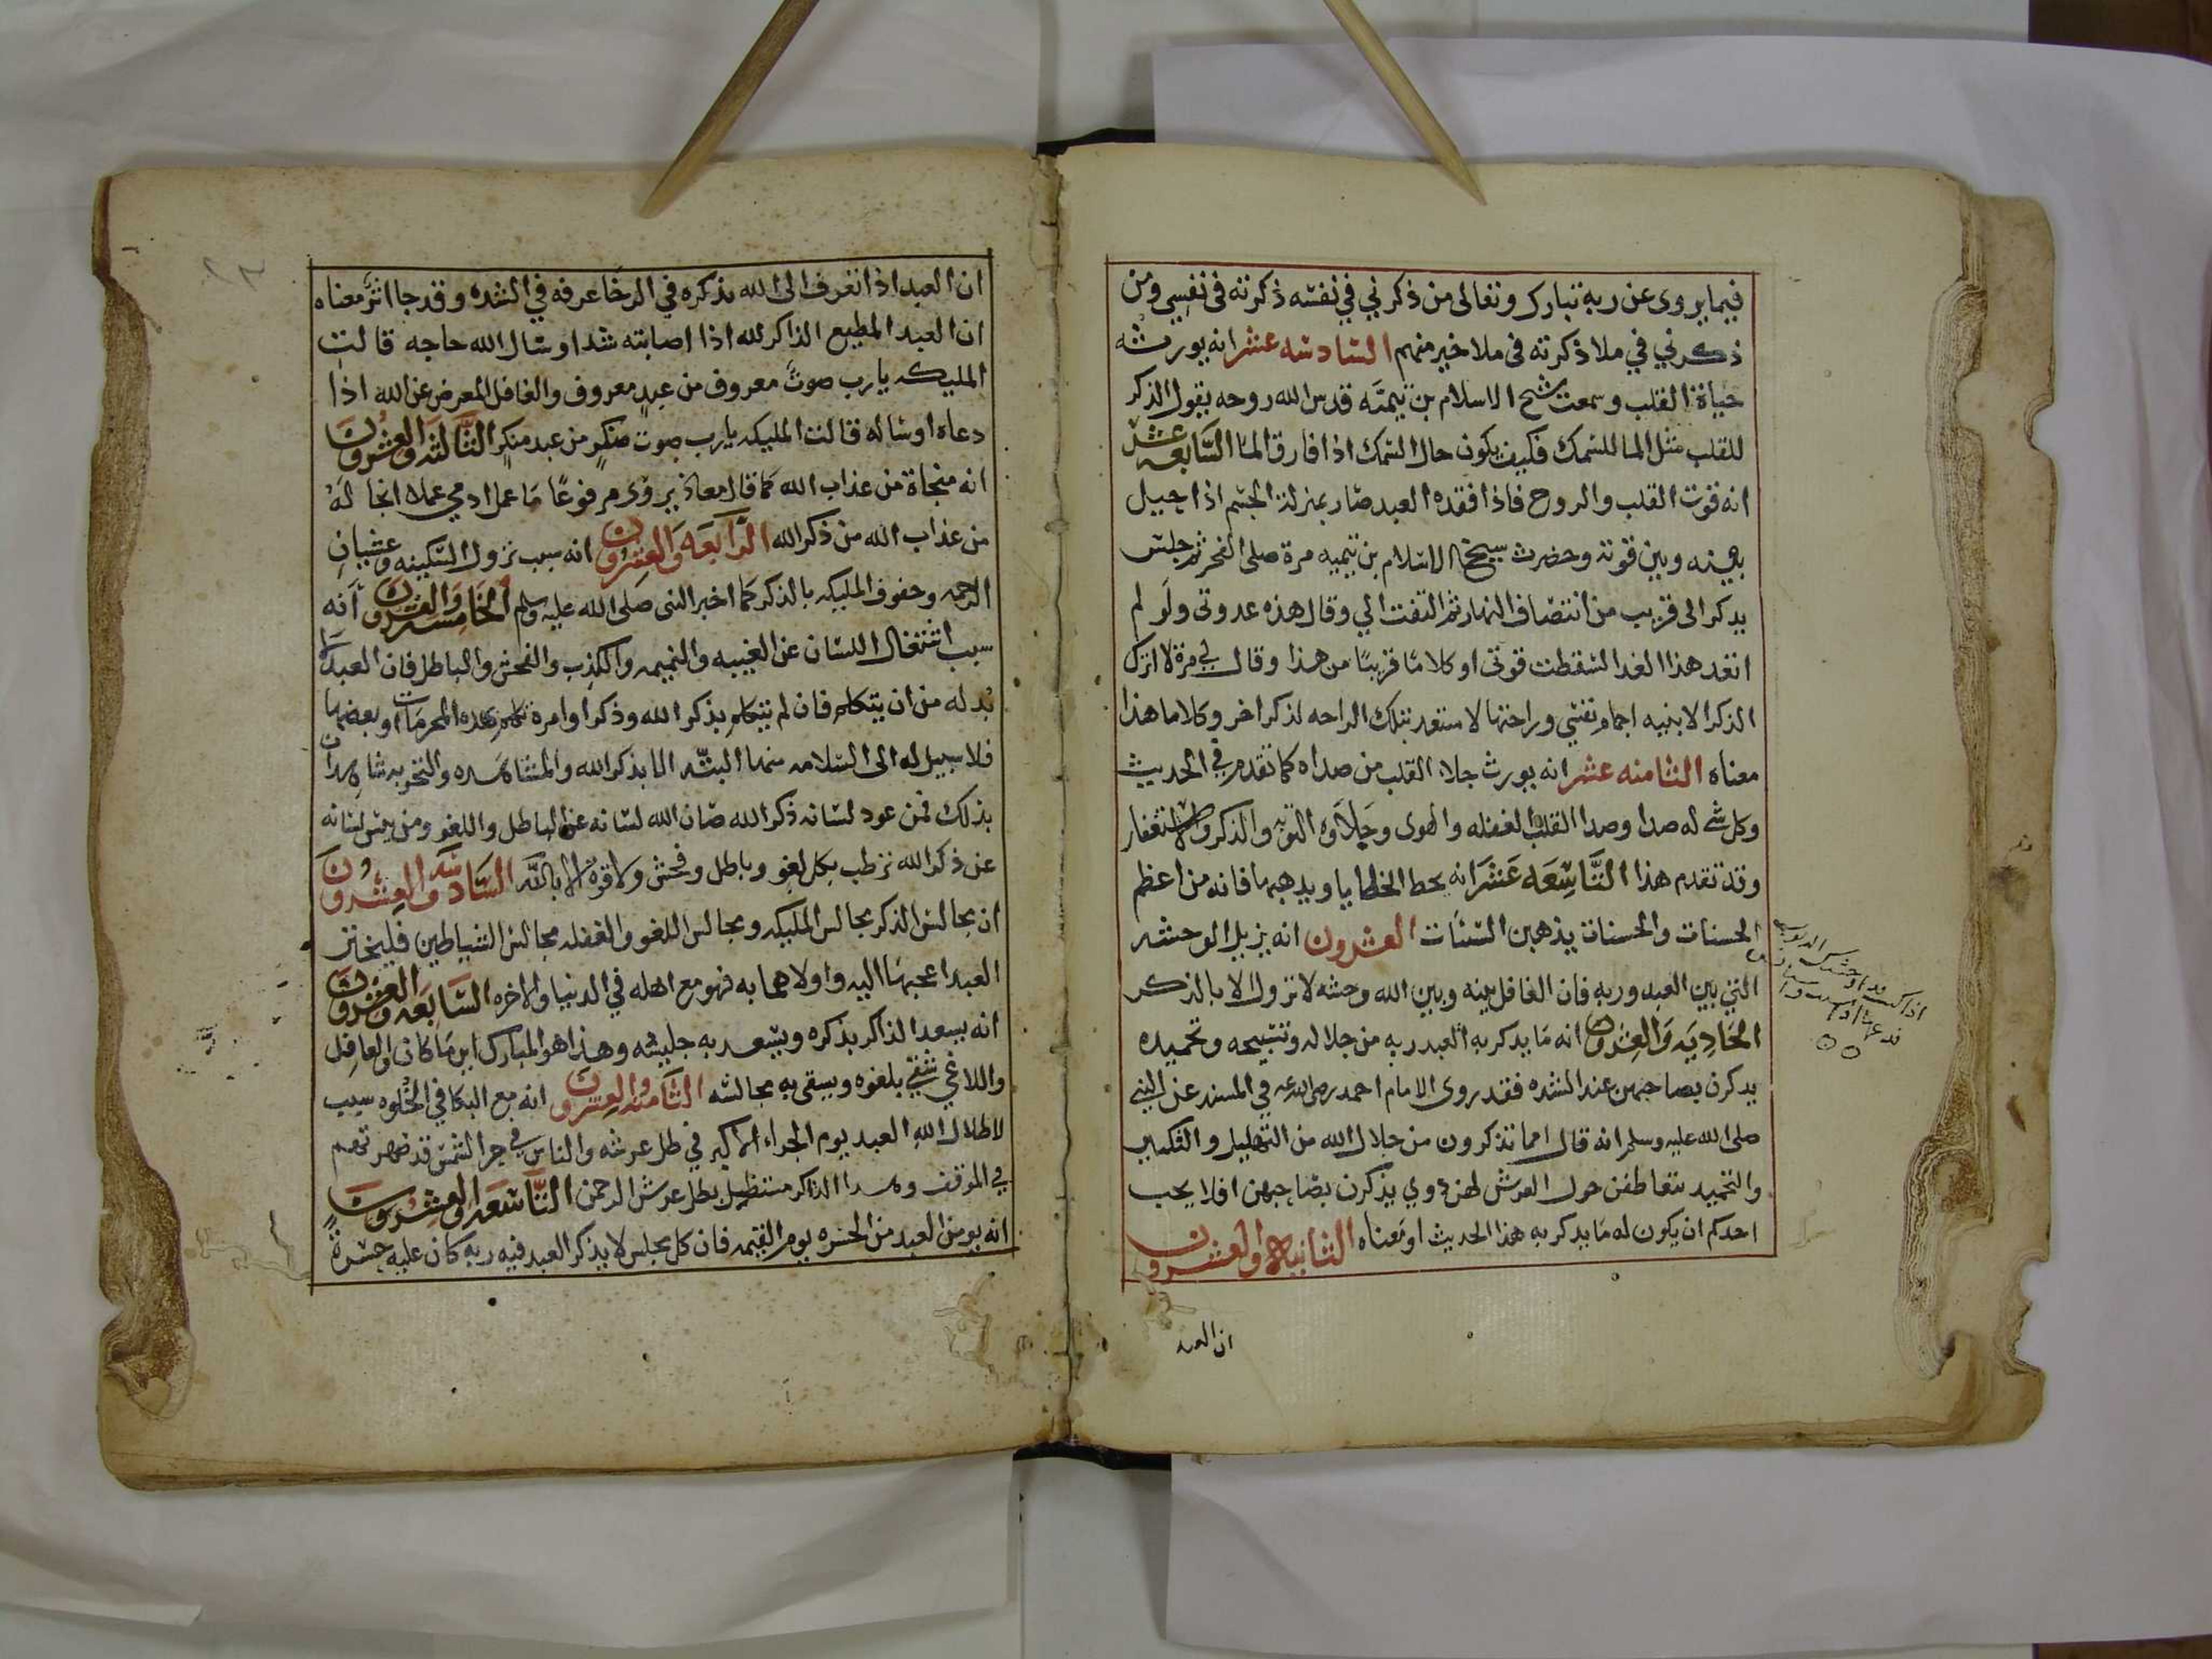 فيما يروى عن ربه تبارك وتعالى من ذكرني في نفسه ذكرته فى نفسي ومن
ذكرني في ملا ذكرته فى ملا خير منهم السادسه عشر انه يورثه
حياة القلب وسمعت شيخ الاسلام بن تيميه قدس الله روحه يقول الذكر
للقلب مثل الما للسمك فكيف يكون حال السمك اذا فارق الما السابعه عشر
انه قوت القلب والروح فاذا فقده العبد صار بمنزلة الجسم اذا حيل
بينه وبين قوته وحضرت شيخ الاسلام بن تيميه مرة صلى الفجر ثم جلس
يدكر الى قريب من انتصاف النهار ثم التفت الي وقال هذه عدوتى ولو لم
اتغد هذا الغدا لسقطت قوتي او كلاما قريبا من هذا وقال لي مرة لا اترك
الذكر الا بنيه اجمام نفسي وراحتها لاستعد بتلك الراحه لذكر اخر وكلاما هذا
معناه الثامنه عشر انه يورث جلا القلب من صداه كما تقدم في الحديث
وكل شي له صدا وصدا القلب الغفله والهوى وجلاوه التوبه والذكر والاستغفار
وقد تقدم هذا التاسعه عشر انه يحط الخطايا ويدهبها فانه من اعظم
الحسنات والحسنات يذهبن السيات العشرون انه يزيل الوحشه
التي بين العبد وربه فان الغافل بينه وبين الله وحشه لا تزول الا بالذكر
الحاديه والعشرون انه ما يدكر به العبد ربه من جلاله وتسبيحه وتحميده
يدكرن بصاحبهن عند الشده فقد روى الامام احمد رضي الله عنه في المسند عن النبي
صلى الله عليه وسلم انه قال اما تذكرون من جلال الله من التهليل والتكبير
والتحميد يتعاطفن حول العرش لهن دوي يذكرن بصاحبهن افلا يحب
احدكم ان يكون له ما يدكر به هذا الحديث او معناه الثانية والعشرون
ان العبد
ان العبد اذا تعرف الى الله بذكره في الرخا عرفه في الشده وقد جا اثر معناه
ان العبد المطيع الذاكر لله اذا اصابته شدا او سال الله حاجه قالت
المليكه يارب صوت معروف من عبد معروف والغافل المعرض عن الله اذا
دعاه او ساله قالت المليكه يارب صوت منكر من عبد منكر الثالثه والعشرون
انه منجاة من عذاب الله كما قال معاذ يروى مرفوعا ما عمل ادمي عملا انجا له
من عذاب الله من ذكر الله الرابعه والعشرون انه سبب نزول السكينه وغشيان
الرحمه وحفوف المليكه بالذكر كما اخبر النبى صلى الله عليه وسلم الخامسه والعشرون انه
سبب اشتغال اللسان عن الغيبه والنميمه والكذب والفحش والباطل فان العبد لا
بد له من ان يتكلم فان لم يتكلم بذكر الله وذكر اوامره تكلم بهذه المحرمات او بعضها
فلا سبيل له الى السلامه منها البته الا بذكر الله والمشاهده والتجربه شاهدان
بذلك فمن عود لسانه ذكر الله صان الله لسانه عن الباطل واللغو ومن يبس لسانه
عن ذكر الله ترطب بكل لغو وباطل وفحش ولا قوة الا بالله السادسه والعشرون
ان مجالس الذكر مجالس المليكه ومجالس اللغو والغفله مجالس الشياطين فليختر
العبد اعجبهما اليه واولاهما به فهو مع اهله في الدنيا والاخره السابعه والعشرون
انه يسعد الذاكر بذكره ويسعد به جليسه وهذا هو المبارك اين ما كان والغافل
واللاغي شقي بلغوه ويشقى به مجالسه الثامنه والعشرون انه مع البكا في الخلوه سبب
لاظلال الله العبد يوم الجزاء الاكبر في ظل عرشه والناس في حر الشمس قد
في الموقف وهدا الذاكر مستظل بظل عرش الرحمن التاسعه والعشرون
انه يومن العبد من الحسره يوم القيمه فان كل مجلس لا يذكر العبد فيه ربه كان عليه حسرة